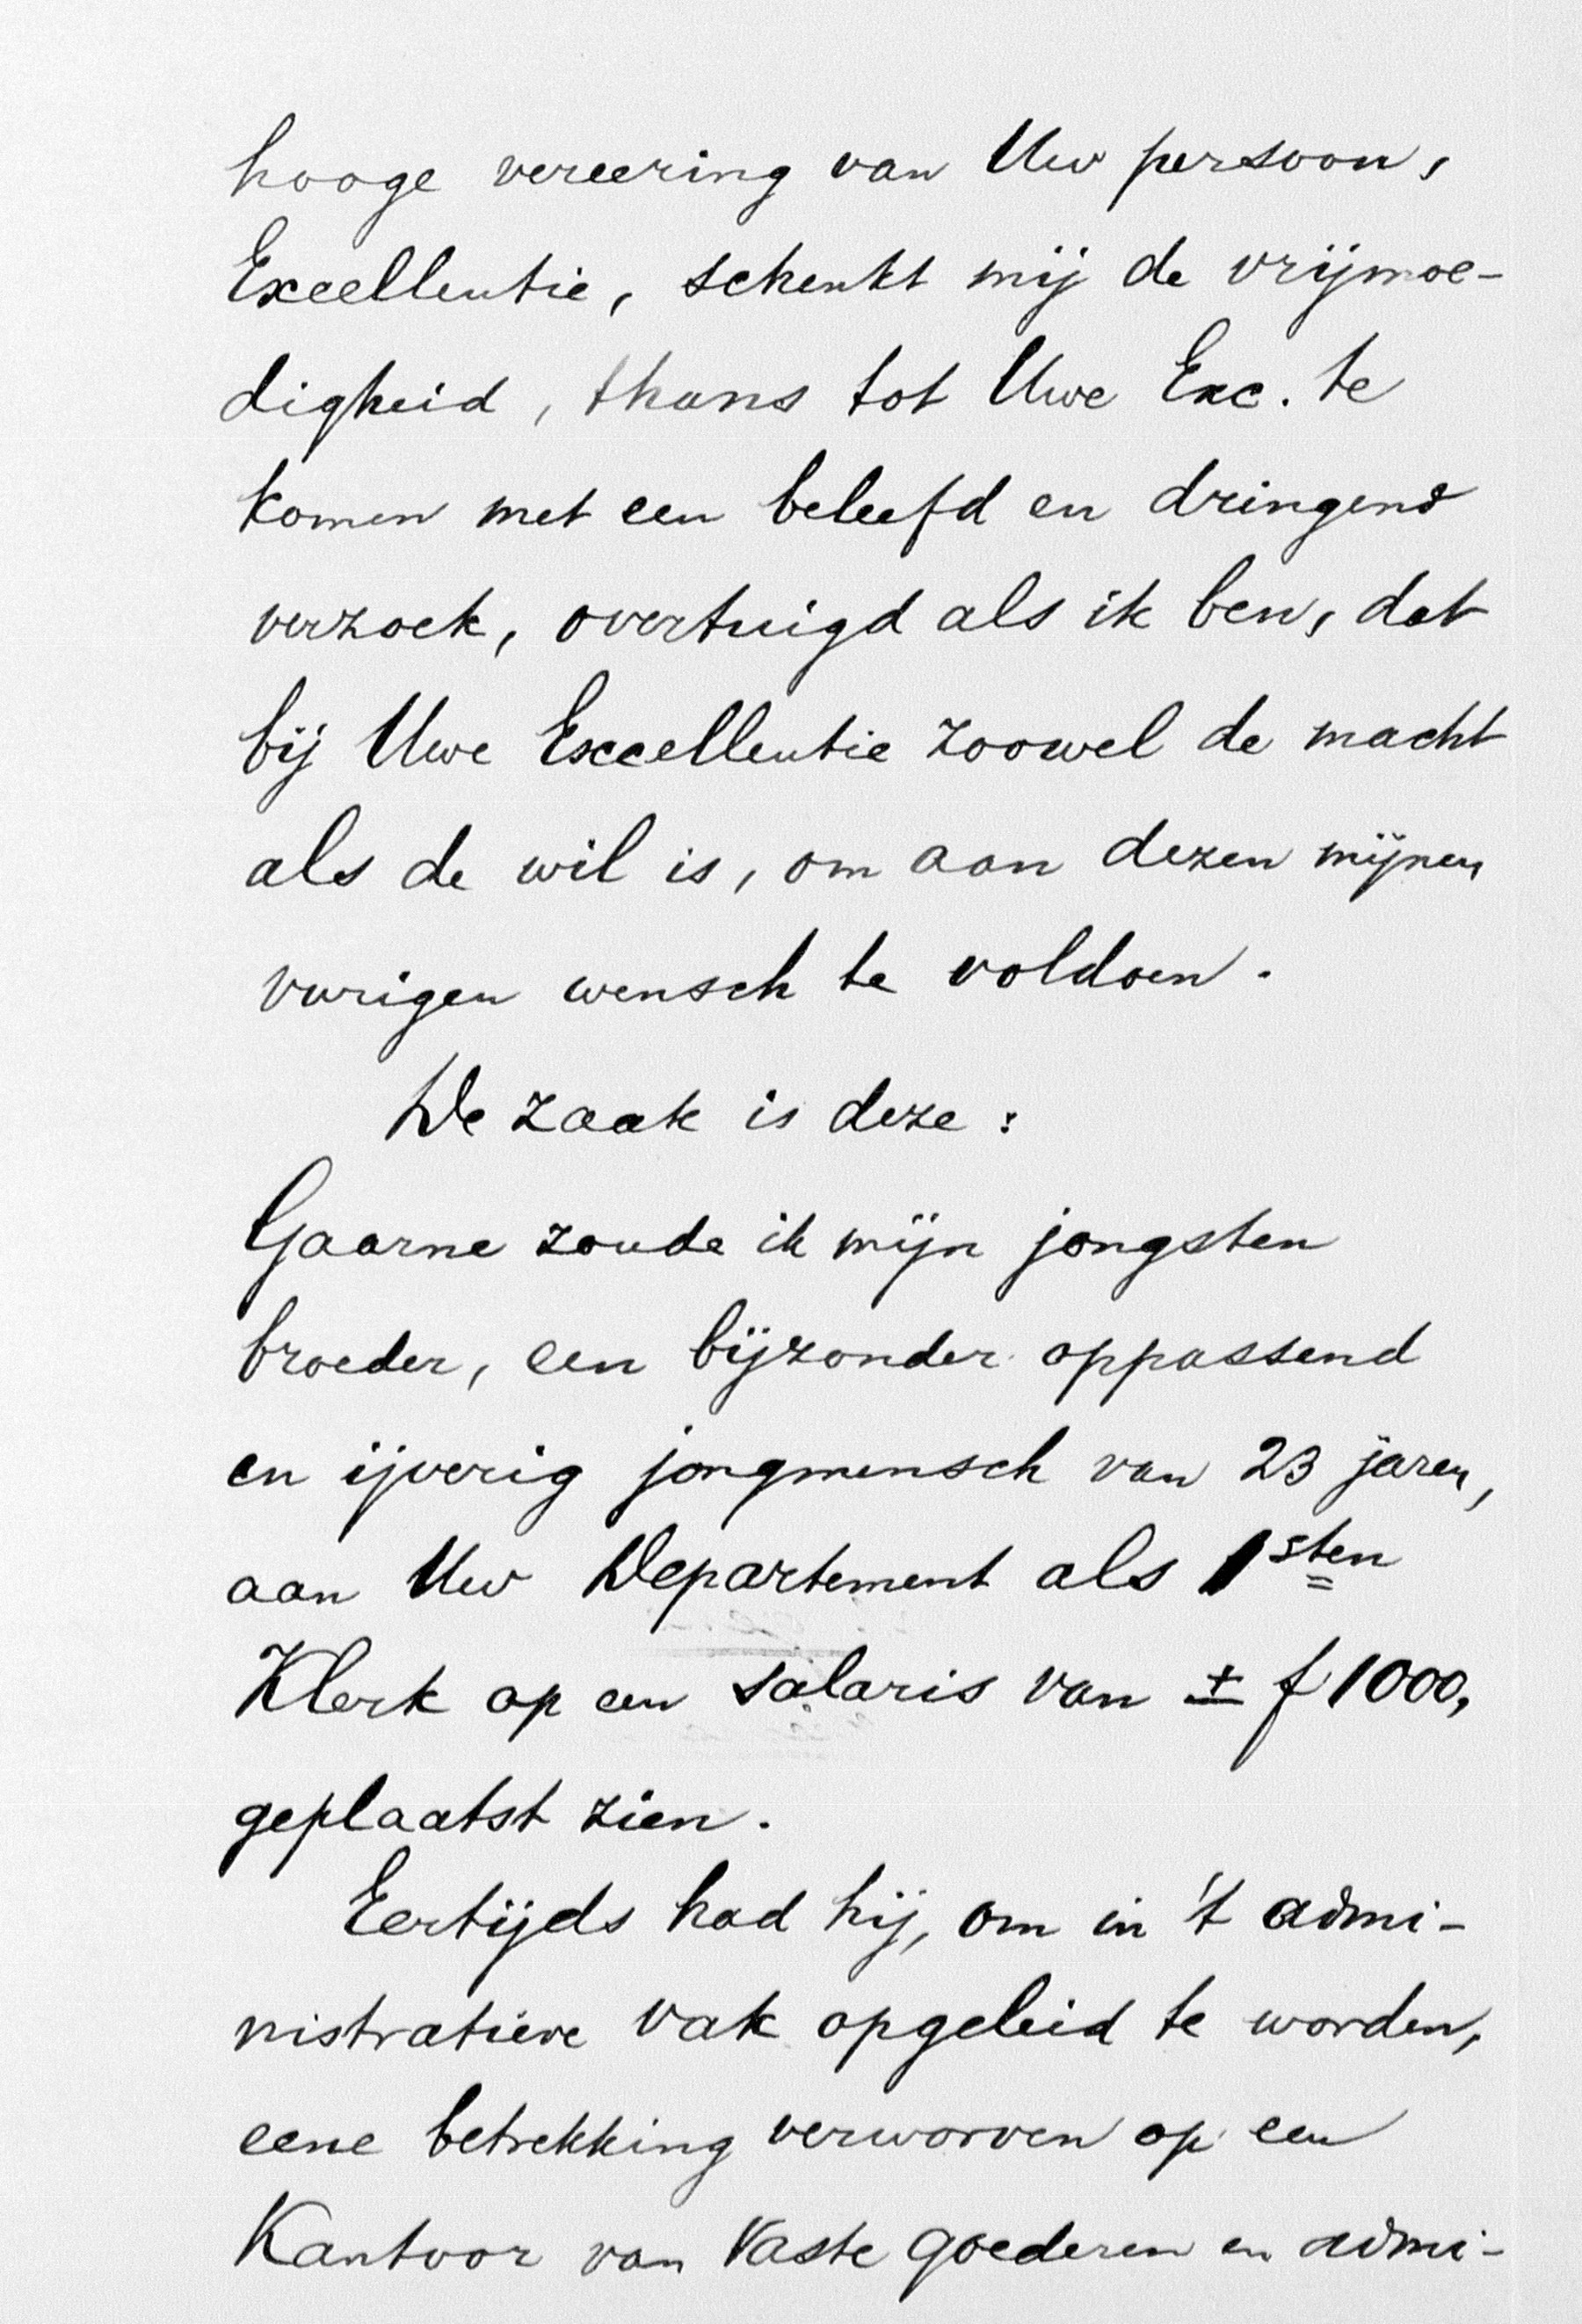 hooge vereering van Uw persoon,
Excellentie, schenkt mij de vrijmoe-
digheid, thans tot Uwe Exc. te
komen met een beleefd en dringend
verzoek, overtuigd als ik ben, dat
bij Uwe Excellentie zoowel de macht
als de wil is, om aan dezen mijnen
vurigen wensch te voldoen.
De zaak is deze:
Gaarne zoude ik mijn jongsten
broeder, een bijzonder oppassend
en ijverig jongmensch van 23 jaren,
aan Uw Departement als 1sten
Klerk op een salaris van ± f 1000,
geplaatst zien.
Eertijds had hij, om in 't admi-
nistratieve vak opgeleid te worden,
eene betrekking verworven op een
Kantoor van Vaste goederen en admi-